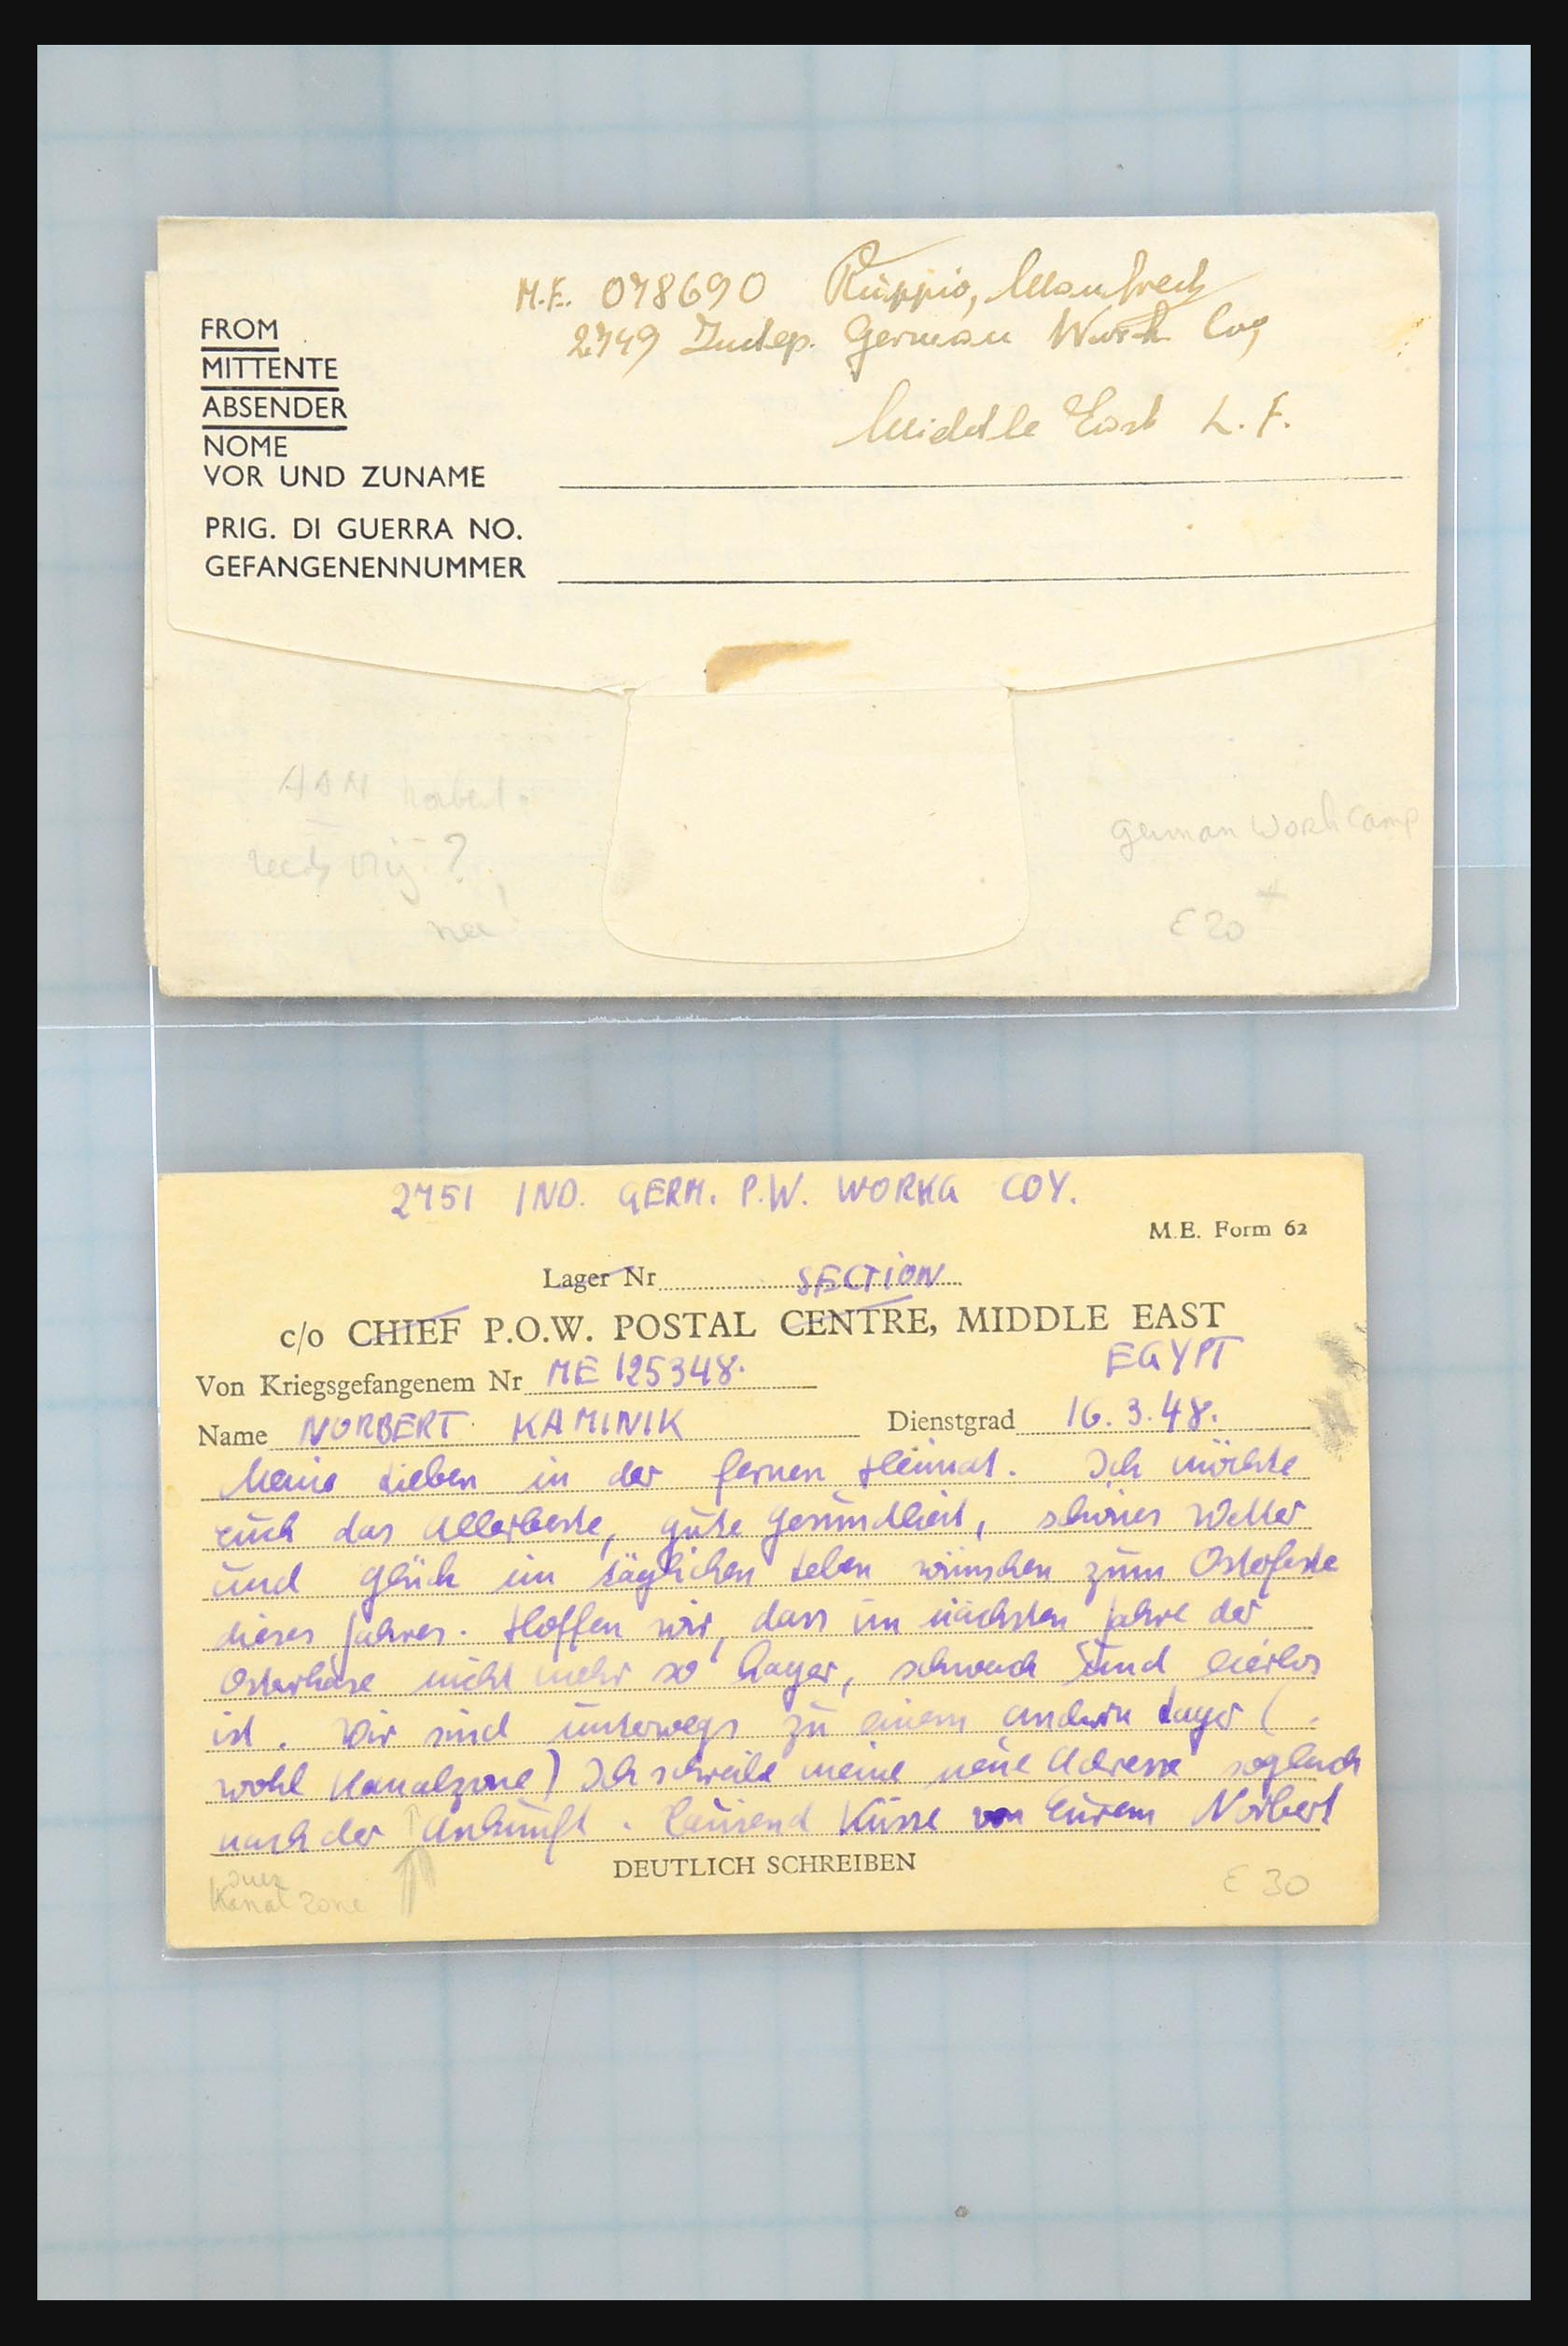 M.E. 078690 Ruppio, Manfred
2749 Indep. German Work Coy
Middle East L. F.
FROM
MITTENTE
ABSENDER
NOME
VOR UND ZUNAME
PRIG. DI GUERRA NO.
GEFANGENENNUMMER
German Work Camp
€ 20
2751 IND. GERM. P.W. WORKG COY.
M.E. Form 62
Lager Nr SECTION
c/o CHIEF P.O.W. POSTAL CENTRE, MIDDLE EAST
EGYPT
Von Kriegsgefangenem Nr ME 125348.
Name NORBERT KAMINIK Dienstgrad 16.3.48.
Meine Lieben in der fernen Heimat. Ich möchte
euch das Allerbeste, gute Gesundheit, schönes Wetter
und Glück im täglichen Leben wünschen zum Osterfeste
dieses Jahres. Hoffen wir, dass im nächsten Jahre der
Osterhase nicht mehr so hager, schwach und eierlos
ist. Wir sind unterwegs zu einem andern Lager (
wohl Kanalzone) Ich schreibe meine neue Adresse sogleich
nach der Ankunft. Tausend Küsse von Eurem Norbert
DEUTLICH SCHREIBEN
Suez
Kanal Zone
€ 30